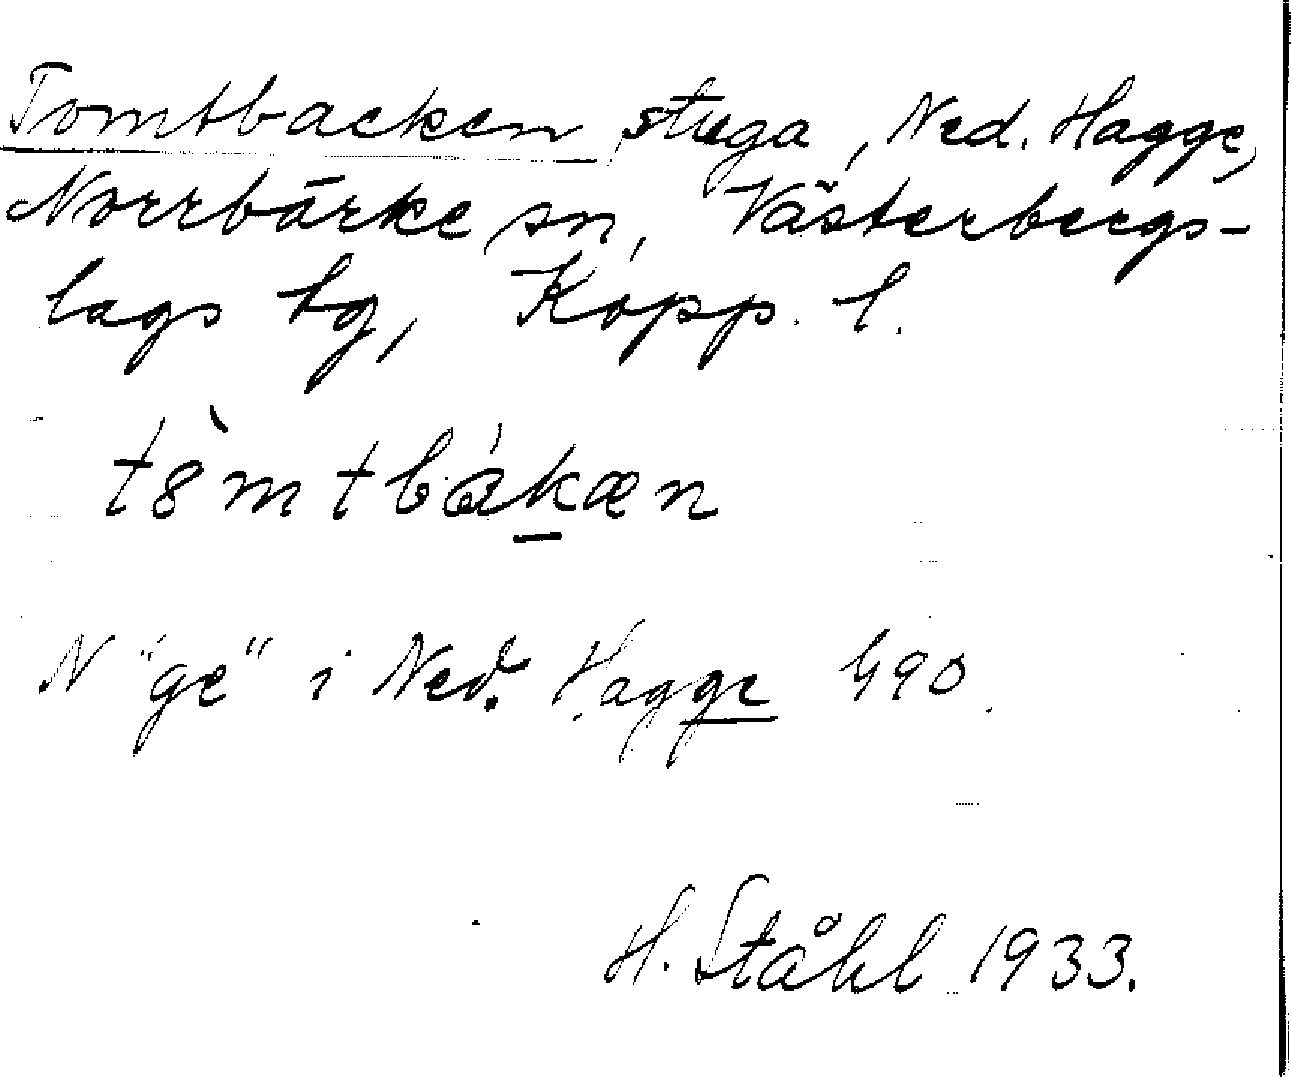 Tomtbacken stuga, Ned. Hagge,
Norrbärke sn, Västerbergs-
lags tg, Kopp. l.
tòmtbákæn
N "ge" i Ned. Hagge G90.
H. Ståhl 1933.